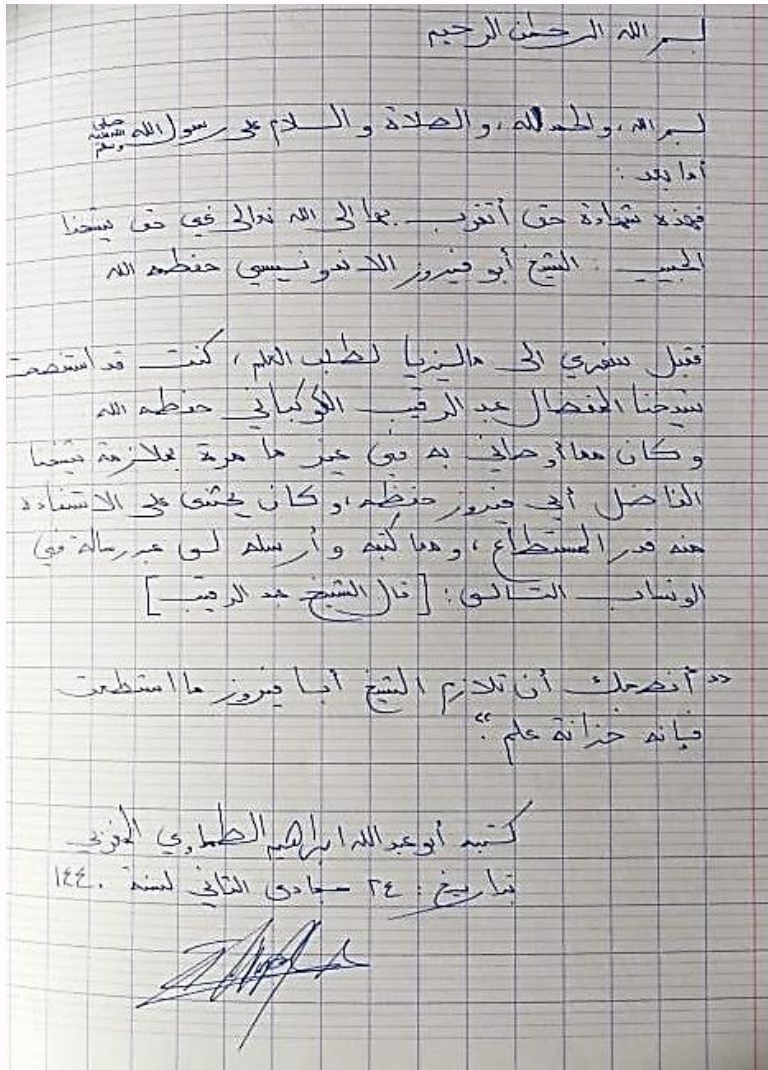 بسم الله الرحمن الرحيم
بسم الله، والحمد لله، والصلاة والسلام على رسول الله ﷺ
أما بعد :
فهذه شهادة حق أتقرب بها إلى الله تعالى في حق شيخنا
الحبيب : الشيخ أبو فيروز الاندونيسي حفظه الله
فقبل سفري الى ماليزيا لطلب العلم، كنت قد استنصحت
شيخنا المفضال عبد الرقيب الكوكباني حفظه الله
وكان مما أوصاني به في غير ما مرة بملازمة شيخنا
الفاضل أبي فيروز حفظه، وكان يحثني على الاستفادة
منه قدر المستطاع، ومما كتبه وأرسله لي عبر رسالة في
الوتساب التالي : [قال الشيخ عبد الرقيب]
"أنصحك أن تلازم الشيخ أبا فيروز ما استطعت
فإنه خزانة علم"
كتبه أبو عبد الله ابراهيم المغربي
بتاريخ : ٢٤ جمادى الثاني لسنة ١٤٤٠